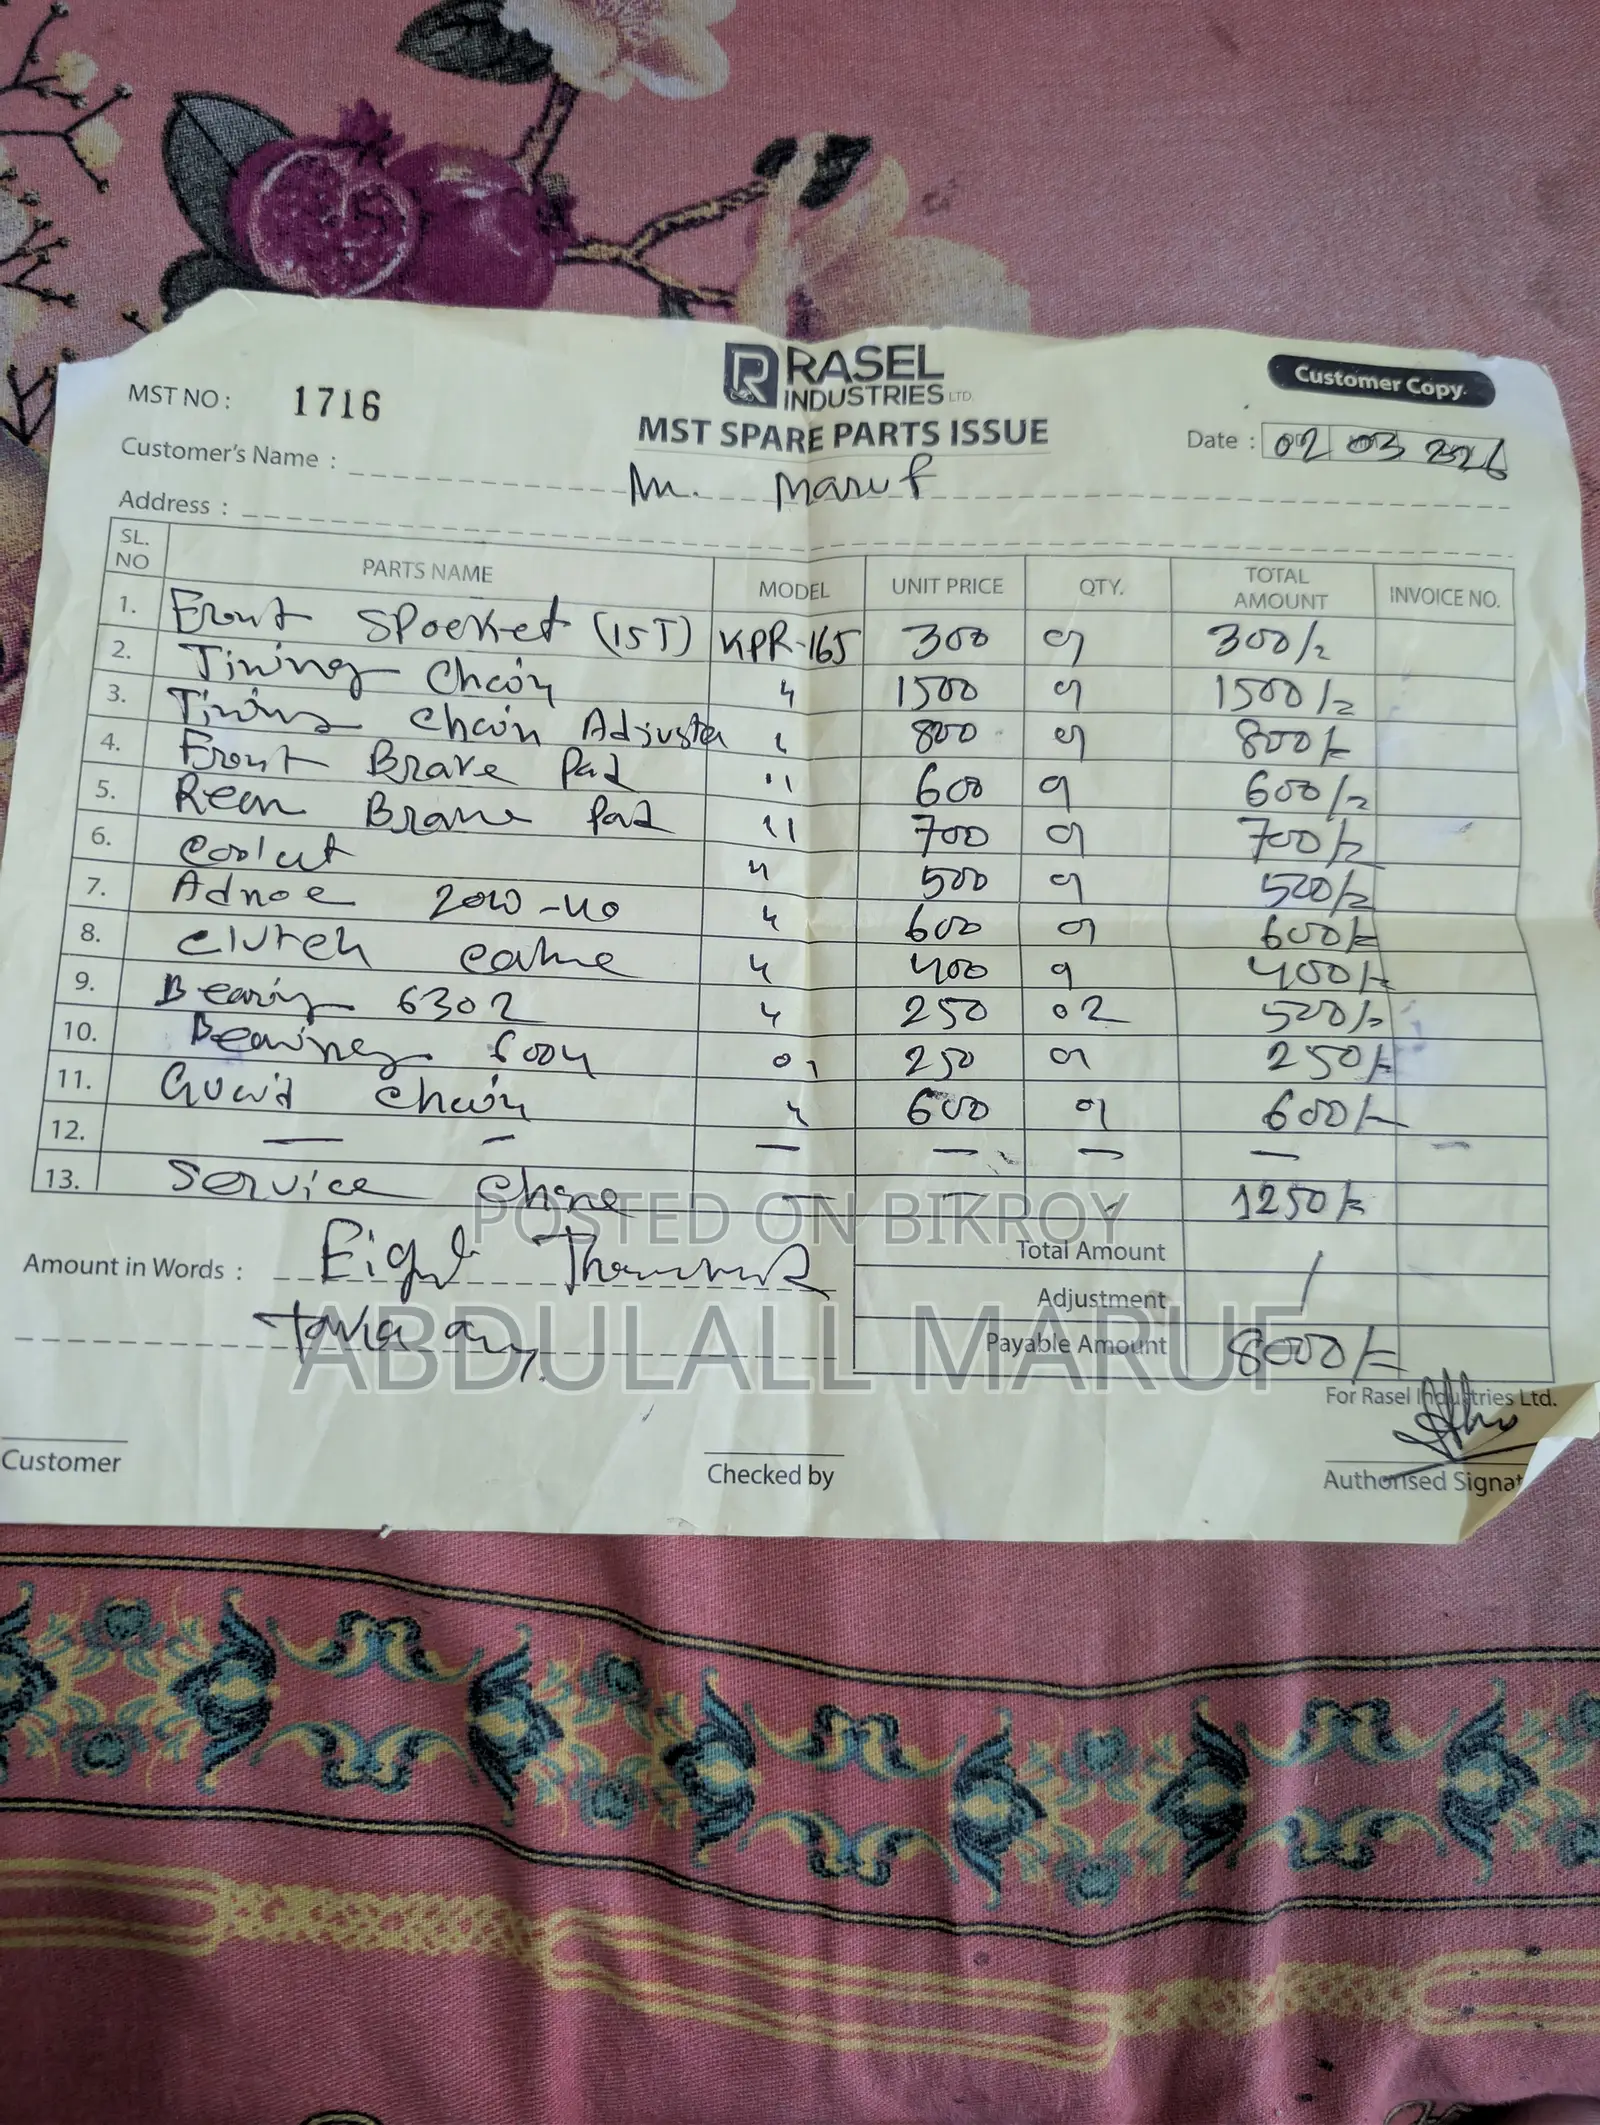 RASEL
INDUSTRIES LTD.
Customer Copy
MST NO : 1716
MST SPARE PARTS ISSUE
Date : 02 03 2026
Customer's Name : Mr. Maruf
Address :
SL. NO PARTS NAME MODEL UNIT PRICE QTY. TOTAL AMOUNT INVOICE NO.
1. Front Spocket (15T) KPR-165 300 01 300/=
2. Timing Chain " 1500 01 1500/=
3. Timing Chain Adjuster " 800 01 800/=
4. Front Brake Pad " 600 01 600/=
5. Rear Brake Pad " 700 01 700/=
6. Coolut " 500 01 500/=
7. 20w-40 " 600 01 600/=
8. Clutch " 400 01 400/=
9. Bearing 6302 " 250 02 500/=
10. Bearing 6004 01 250 01 250/=
11. Guaid Chain " 600 01 600/=
12. — — — — — — —
13. Service — — 1250/=
POSTED ON BIKROY
Total Amount /
Amount in Words : Eight Thousand
Adjustment
Taka only
ABDULALL MARUF
Payable Amount 8000/=
For Rasel Industries Ltd.
Customer
Checked by
Authorised Signat